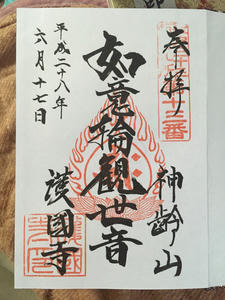 奉拝
神齢山
如意輪観世音
護國寺
平成二十八年
六月十七日